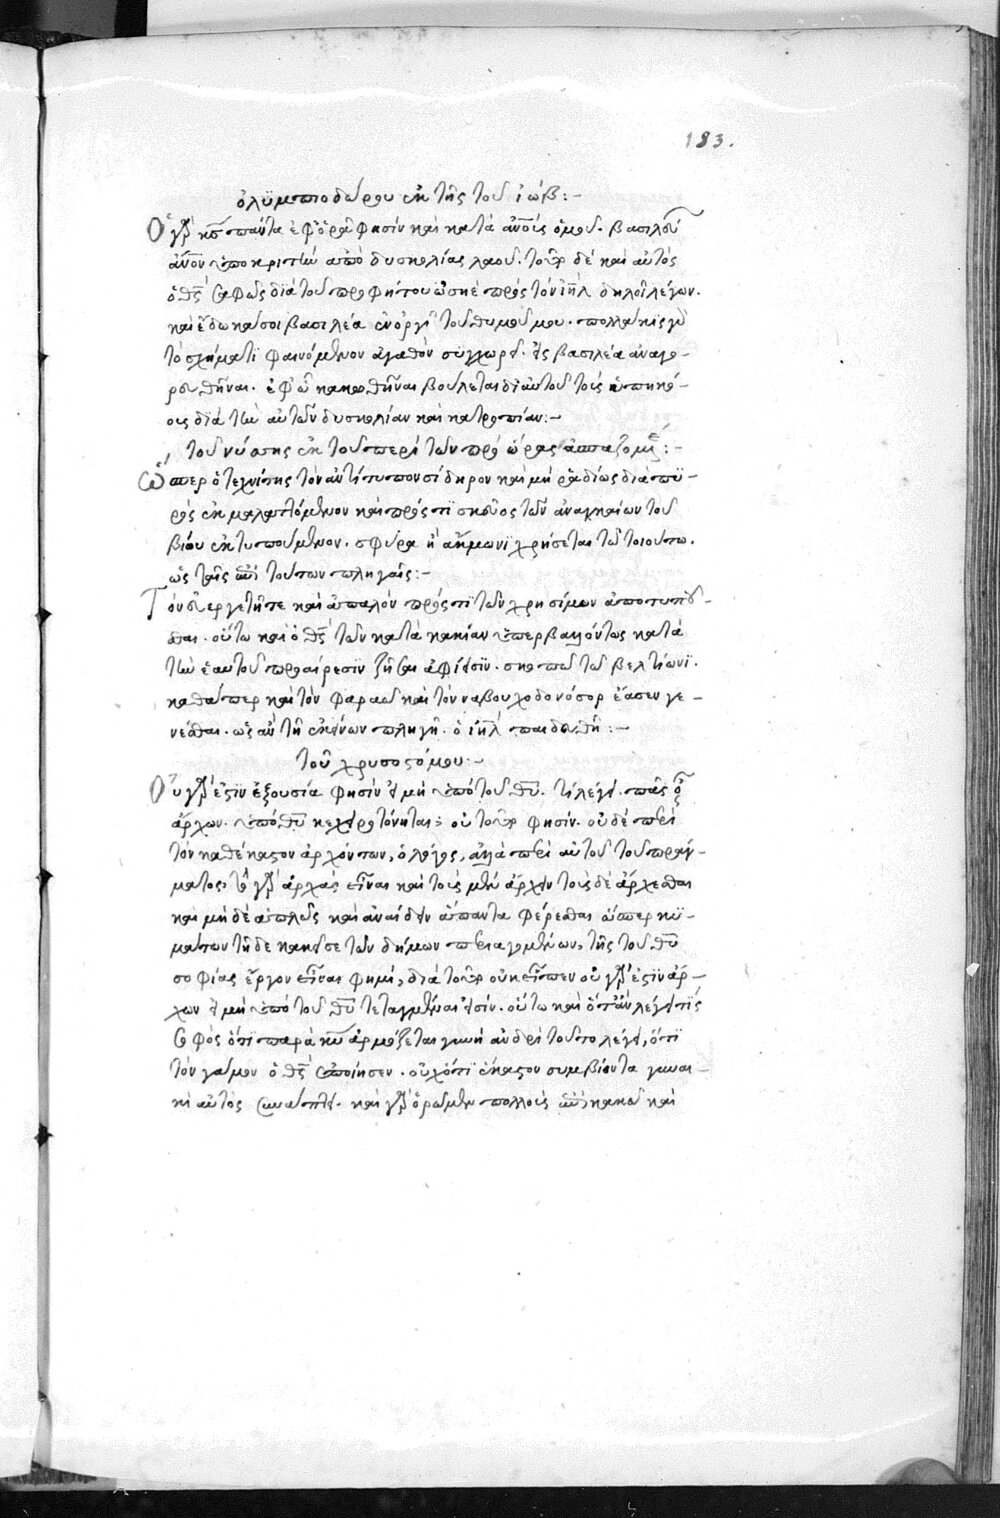 183.
ὀλϋμπιοδώρου ἐκ τῆς τοῦ ἰώβ:-
Ὁ γὰρ κ̅ς̅ πάντα ἐφορᾶ φησὶν καὶ κατὰ ἀν̅ο̅υς ὁμοῦ. βασιλεύει
ἀν̅ο̅ν ὑποκριτὴν ἀπὸ δυσκολίας λαοῦ. τοῦτο δὲ καὶ αὐτὸς
ὁ θ̅ς̅ σαφῶς διὰ τοῦ προφήτου ὠσηὲ πρὸς τὸν ι̅η̅λ̅ δηλοῖ λέγων.
καὶ ἔδωκα σοι βασιλέα ἐν ὀργῆ τοῦ θυμοῦ μου. πολλάκις γὰρ
τὸ σχήματι φαινόμενον ἀγαθὸν συγχωρεῖ εἰς βασιλέα ἀναγο-
ρευθῆναι. ἐφ' ᾧ κακωθῆναι βούλεται δι' αὐτοῦ τοὺς ὑπηκό-
ους διὰ τὴν αὐτῶν δυσκολίαν καὶ κατροπίαν:-
τοῦ νύσης ἐκ τοῦ περὶ τῶν πρὸ ὥρας ἁπαζομ:-
Ὥσπερ ὁ τεχνίτης τὸν ἀντίτυπον σίδηρον καὶ μὴ ῥαδίως διὰ πυ-
ρὸς ἐκμαλαττόμενον καὶ πρός τι σκεῦος τῶν ἀναγκαίων τοῦ
βίου ἐκτυπούμενον. σφύρα ἢ ἄκμωνι χρήσεται τῶ τοιούτω.
ὡς ταῖς ἐπὶ τούτων πληγαῖς:-
Τὸν εὐεργετῆτε καὶ ἁπαλὸν πρός τι τῶν χρησίμων ἀποτυποῦ-
σθαι. οὕτω καὶ ὁ θ̅ς̅ τῶν κατὰ κακίαν ὑπερβαλόντως κατὰ
τὴν ἑαυτοῦ προαίρεσιν ζῆσαι ἀφίησιν. σκοπῶ τῶ βελτίωνι.
καθάπερ καὶ τὸν φαραὼ καὶ τὸν ναβουχοδονόσορ ἔασεν γε-
νέσθαι. ὡς ἂν τῆ ἐκείνων πληγῆ. ὁ ι̅η̅λ̅ παιδευθῆ:-
τοῦ χρυσοστόμου:-
Οὐ γάρ ἐστιν ἐξουσία φησὶν εἰ μὴ ὑπὸ τοῦ θ̅υ̅. τί λέγει. πᾶς οὖν
ἄρχων. ὑπὸ θ̅υ̅ κεχειροτόνηται; οὐ τοῦτο φησίν. οὐδὲ περὶ
τὸν καθέκαστον ἀρχόντων, ὁ λόγος, ἀλλὰ περὶ αὐτοῦ τοῦ πράγ-
ματος, τὸ γὰρ ἀρχὰς εἶναι καὶ τοὺς μὲν ἄρχειν τοὺς δὲ ἄρχεσθαι
καὶ μηδὲ ἁπλῶς καὶ ἀναίδην ἅπαντα φέρεσθαι ὥσπερ κυ-
μάτων τῆδε κακεῖσε τῶν δήμων περιαγομένων, τῆς τοῦ θ̅υ̅
σοφίας ἔργον εἶναι φημί, διὰ τοῦτο οὐκ εἶπεν οὐ γάρ ἐστιν ἄρ-
χων εἰ μὴ ὑπὸ τοῦ θ̅υ̅ τεταγμέναι εἰσίν. οὕτω καὶ ὅταν λέγει τις
σοφὸς ὅτι παρὰ κ̅υ̅ ἁρμόζεται γυνὴ ἀνδρὶ τοῦτο λέγει, ὅτι
τὸν γάμον ὁ θ̅ς̅ ἐποίησεν. οὐχ ὅτι ἕκαστον συμβιοῦντα γυναι-
κὶ αὐτὸς συνάπτει. καὶ γὰρ ὁρῶμεν πολλοὺς ἐπὶ κακῶ καὶ